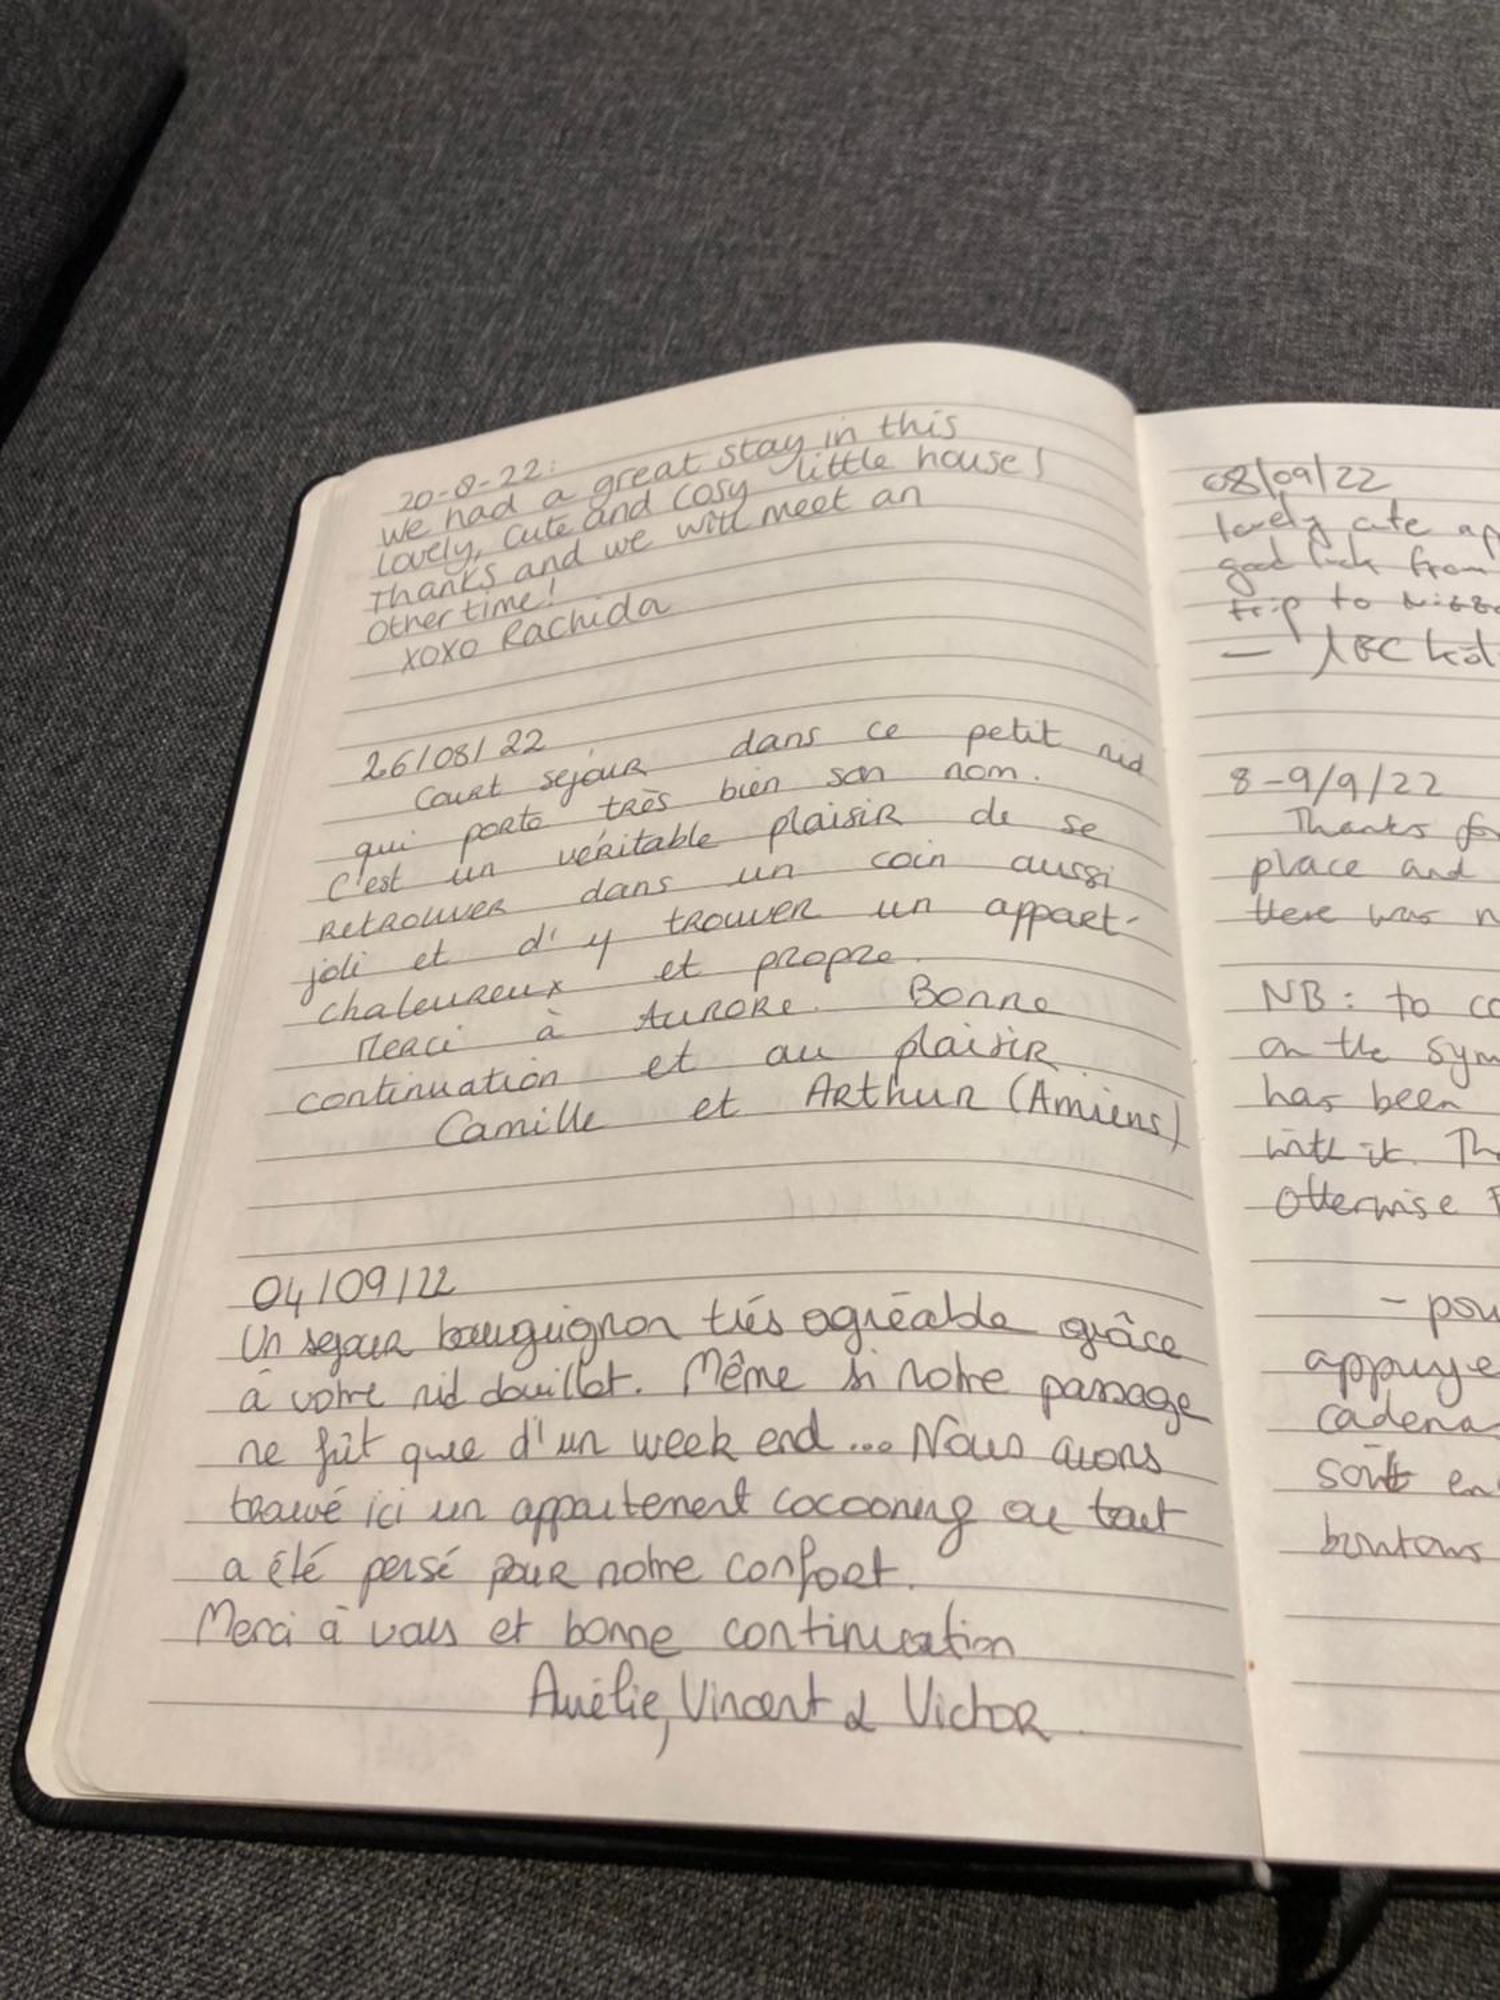 20-8-22:
we had a great stay in this
lovely, cute and cosy little house!
Thanks and we will meet an
other time!
xoxo Rachida
26/08/22
Court séjour dans ce petit nid
qui porte très bien son nom.
C'est un véritable plaisir de se
retrouver dans un coin aussi
joli et d'y trouver un appart-
chaleureux et propre.
Merci à Aurore. Bonne
continuation et au plaisir
Camille et Arthur (Amiens)
04/09/22
Un sejour bourguignon très agréable grâce
à votre nid douillet. Même si notre passage
ne fût que d'un week end... Nous avons
trouvé ici un appartement cocooning ou tout
a été pensé pour notre confort.
Merci à vous et bonne continuation
Aurélie, Vincent & Victor
08/09/22
lovely cute ap
good luck from
trip to
8-9/9/22
Thanks for
place and
there was n
NB: to co
on the sym
has been
with it. Th
Otherwise
- pou
appuye
cadena
sont en
boutons